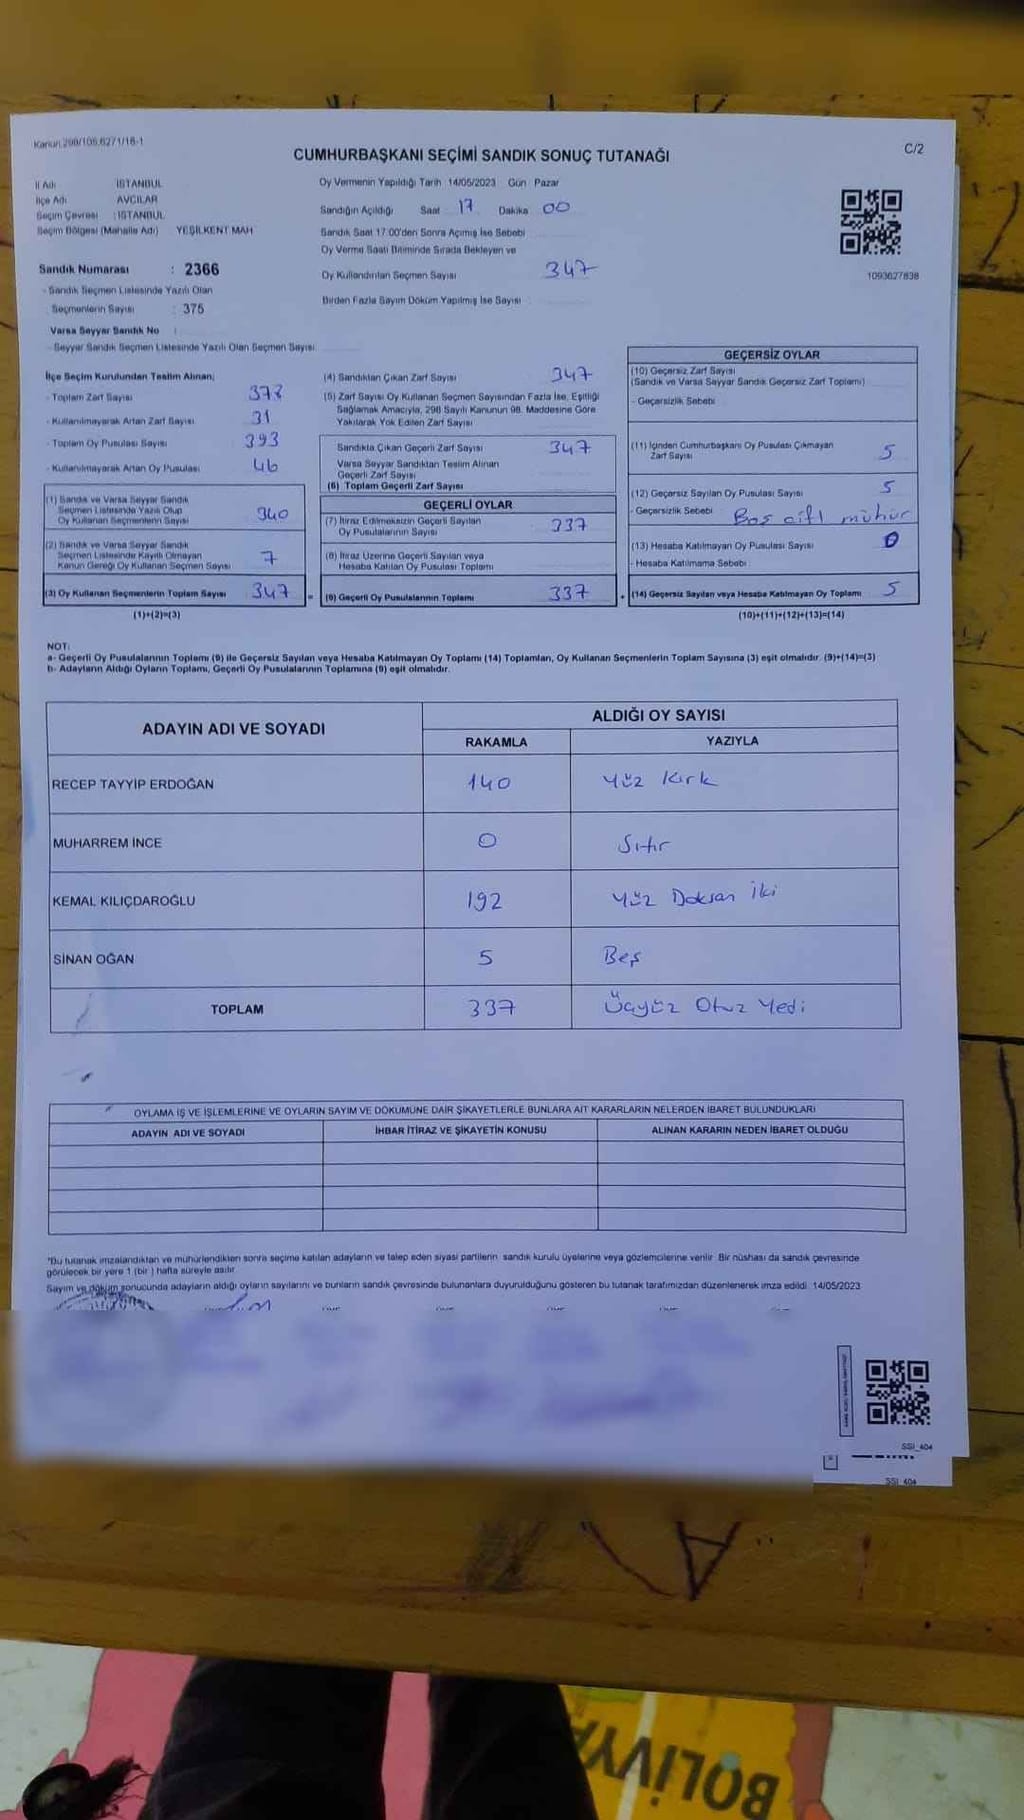 Kanun 298/106.6271/16-1
C/2
CUMHURBAŞKANI SEÇİMİ SANDIK SONUÇ TUTANAĞI
İl Adı İSTANBUL
İlçe Adı AVCILAR
Seçim Çevresi : İSTANBUL
Seçim Bölgesi (Mahalle Adı) YEŞİLKENT MAH
Sandık Numarası : 2366
- Sandık Seçmen Listesinde Yazılı Olan
Seçmenlerin Sayısı : 375
Varsa Seyyar Sandık No :
- Seyyar Sandık Seçmen Listesinde Yazılı Olan Seçmen Sayısı
Oy Vermenin Yapıldığı Tarih 14/05/2023 Gün Pazar
Sandığın Açıldığı Saat 17 Dakika 00
Sandık Saat 17:00'den Sonra Açılmış İse Sebebi
Oy Verme Saati Bitiminde Sırada Bekleyen ve
Oy Kullandırılan Seçmen Sayısı 347
Birden Fazla Sayım Döküm Yapılmış İse Sayısı
1093627838
İlçe Seçim Kurulundan Teslim Alınan;
- Toplam Zarf Sayısı 378
- Kullanılmayarak Artan Zarf Sayısı 31
- Toplam Oy Pusulası Sayısı 393
- Kullanılmayarak Artan Oy Pusulası 46
(1) Sandık ve Varsa Seyyar Sandık
Seçmen Listesinde Yazılı Olup
Oy Kullanan Seçmenlerin Sayısı 340
(2) Sandık ve Varsa Seyyar Sandık
Seçmen Listesinde Kayıtlı Olmayan
Kanun Gereği Oy Kullanan Seçmen Sayısı 7
(3) Oy Kullanan Seçmenlerin Toplam Sayısı 347
(1)+(2)=(3)
(4) Sandıktan Çıkan Zarf Sayısı 347
(5) Zarf Sayısı Oy Kullanan Seçmen Sayısından Fazla İse, Eşitliği
Sağlamak Amacıyla, 298 Sayılı Kanunun 98. Maddesine Göre
Yakılarak Yok Edilen Zarf Sayısı
Sandıkta Çıkan Geçerli Zarf Sayısı 347
Varsa Seyyar Sandıktan Teslim Alınan
Geçerli Zarf Sayısı
(6) Toplam Geçerli Zarf Sayısı
GEÇERLİ OYLAR
(7) İtiraz Edilmeksizin Geçerli Sayılan
Oy Pusulalarının Sayısı 337
(8) İtiraz Üzerine Geçerli Sayılan veya
Hesaba Katılan Oy Pusulası Toplamı
= (9) Geçerli Oy Pusulalarının Toplamı 337
GEÇERSİZ OYLAR
(10) Geçersiz Zarf Sayısı
(Sandık ve Varsa Seyyar Sandık Geçersiz Zarf Toplamı)
- Geçersizlik Sebebi
(11) İçinden Cumhurbaşkanı Oy Pusulası Çıkmayan
Zarf Sayısı 5
(12) Geçersiz Sayılan Oy Pusulası Sayısı 5
- Geçersizlik Sebebi Boş çift mühür
(13) Hesaba Katılmayan Oy Pusulası Sayısı 0
- Hesaba Katılmama Sebebi
+ (14) Geçersiz Sayılan veya Hesaba Katılmayan Oy Toplamı 5
(10)+(11)+(12)+(13)=(14)
NOT:
a- Geçerli Oy Pusulalarının Toplamı (9) ile Geçersiz Sayılan veya Hesaba Katılmayan Oy Toplamı (14) Toplamları, Oy Kullanan Seçmenlerin Toplam Sayısına (3) eşit olmalıdır. (9)+(14)=(3)
b- Adayların Aldığı Oyların Toplamı, Geçerli Oy Pusulalarının Toplamına (9) eşit olmalıdır.
ADAYIN ADI VE SOYADI
ALDIĞI OY SAYISI
RAKAMLA YAZIYLA
RECEP TAYYİP ERDOĞAN 140 Yüz Kırk
MUHARREM İNCE 0 Sıfır
KEMAL KILIÇDAROĞLU 192 Yüz Doksan İki
SİNAN OĞAN 5 Beş
TOPLAM 337 Üçyüz Otuz Yedi
OYLAMA İŞ VE İŞLEMLERİNE VE OYLARIN SAYIM VE DÖKÜMÜNE DAİR ŞİKAYETLERLE BUNLARA AİT KARARLARIN NELERDEN İBARET BULUNDUKLARI
ADAYIN ADI VE SOYADI İHBAR İTİRAZ VE ŞİKAYETİN KONUSU ALINAN KARARIN NEDEN İBARET OLDUĞU
*Bu tutanak imzalandıktan ve mühürlendikten sonra seçime katılan adayların ve talep eden siyasi partilerin, sandık kurulu üyelerine veya gözlemcilerine verilir. Bir nüshası da sandık çevresinde
görülecek bir yere 1 (bir ) hafta süreyle asılır.
Sayım ve döküm sonucunda adayların aldığı oyların sayılarını ve bunların sandık çevresinde bulunanlara duyurulduğunu gösteren bu tutanak tarafımızdan düzenlenerek imza edildi. 14/05/2023
SSI_404
SSI_404
BOLİVYA